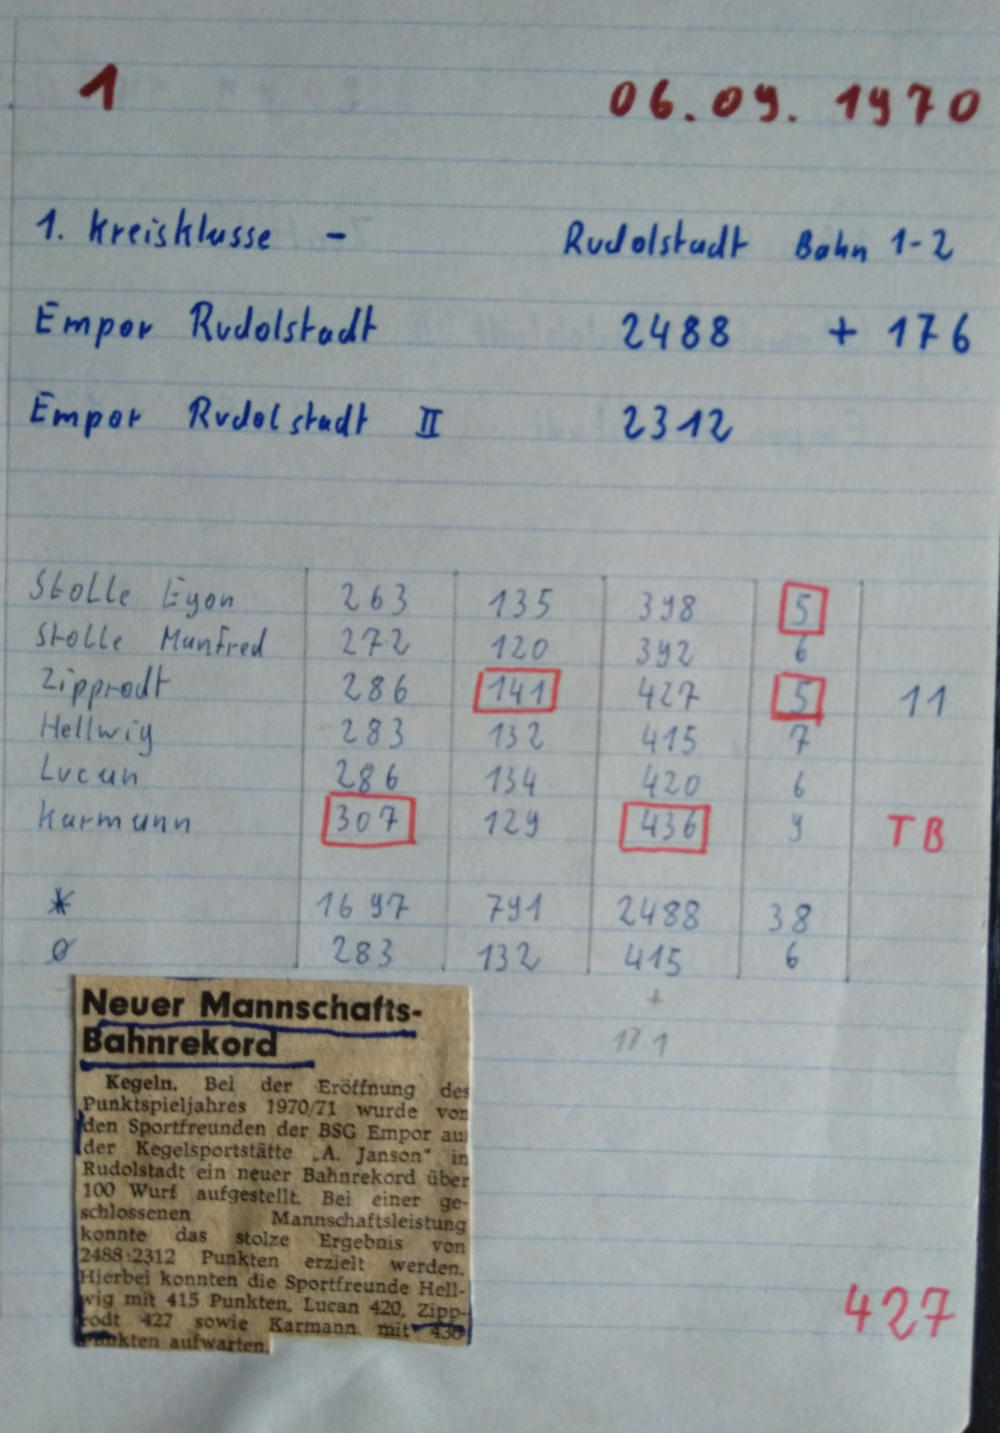 1 06.09.1970
1. Kreisklasse - Rudolstadt Bahn 1-2
Empor Rudolstadt 2488 + 176
Empor Rudolstadt II 2312
Stolle Egon 263 135 398 5
Stolle Manfred 272 120 392 6
Zipprodt 286 141 427 5 11
Hellwig 283 132 415 7
Lucan 286 134 420 6
Karmann 307 129 436 9 TB
* 1697 791 2488 38
Ø 283 132 415 6
+
17.1
Neuer Mannschafts-
Bahnrekord
Kegeln. Bei der Eröffnung des
Punktspieljahres 1970/71 wurde von
den Sportfreunden der BSG Empor auf
der Kegelsportstätte „A. Janson" in
Rudolstadt ein neuer Bahnrekord über
100 Wurf aufgestellt. Bei einer ge-
schlossenen Mannschaftsleistung
konnte das stolze Ergebnis von
2488:2312 Punkten erzielt werden.
Hierbei konnten die Sportfreunde Hell-
wig mit 415 Punkten, Lucan 420, Zipp-
rodt 427 sowie Karmann mit 436
Punkten aufwarten.
427